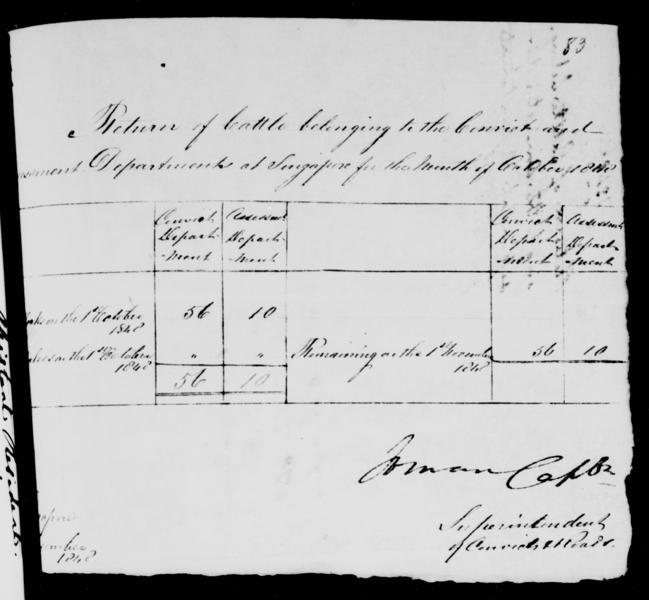 83
Return of Cattle belonging to the Convict and
Department at Singapore for the Month of October 1848
Convict Depart-ment
Assessment Depart-ment
Convict Depart-ment
Assessment Depart-ment
on the 1st October 1848 56 10
the 1st October 1848 " "
Remaining on the 1st November 1848 56 10
56 10
Man Capt
Superintendent
of Convicts & Roads.
1848
Resident